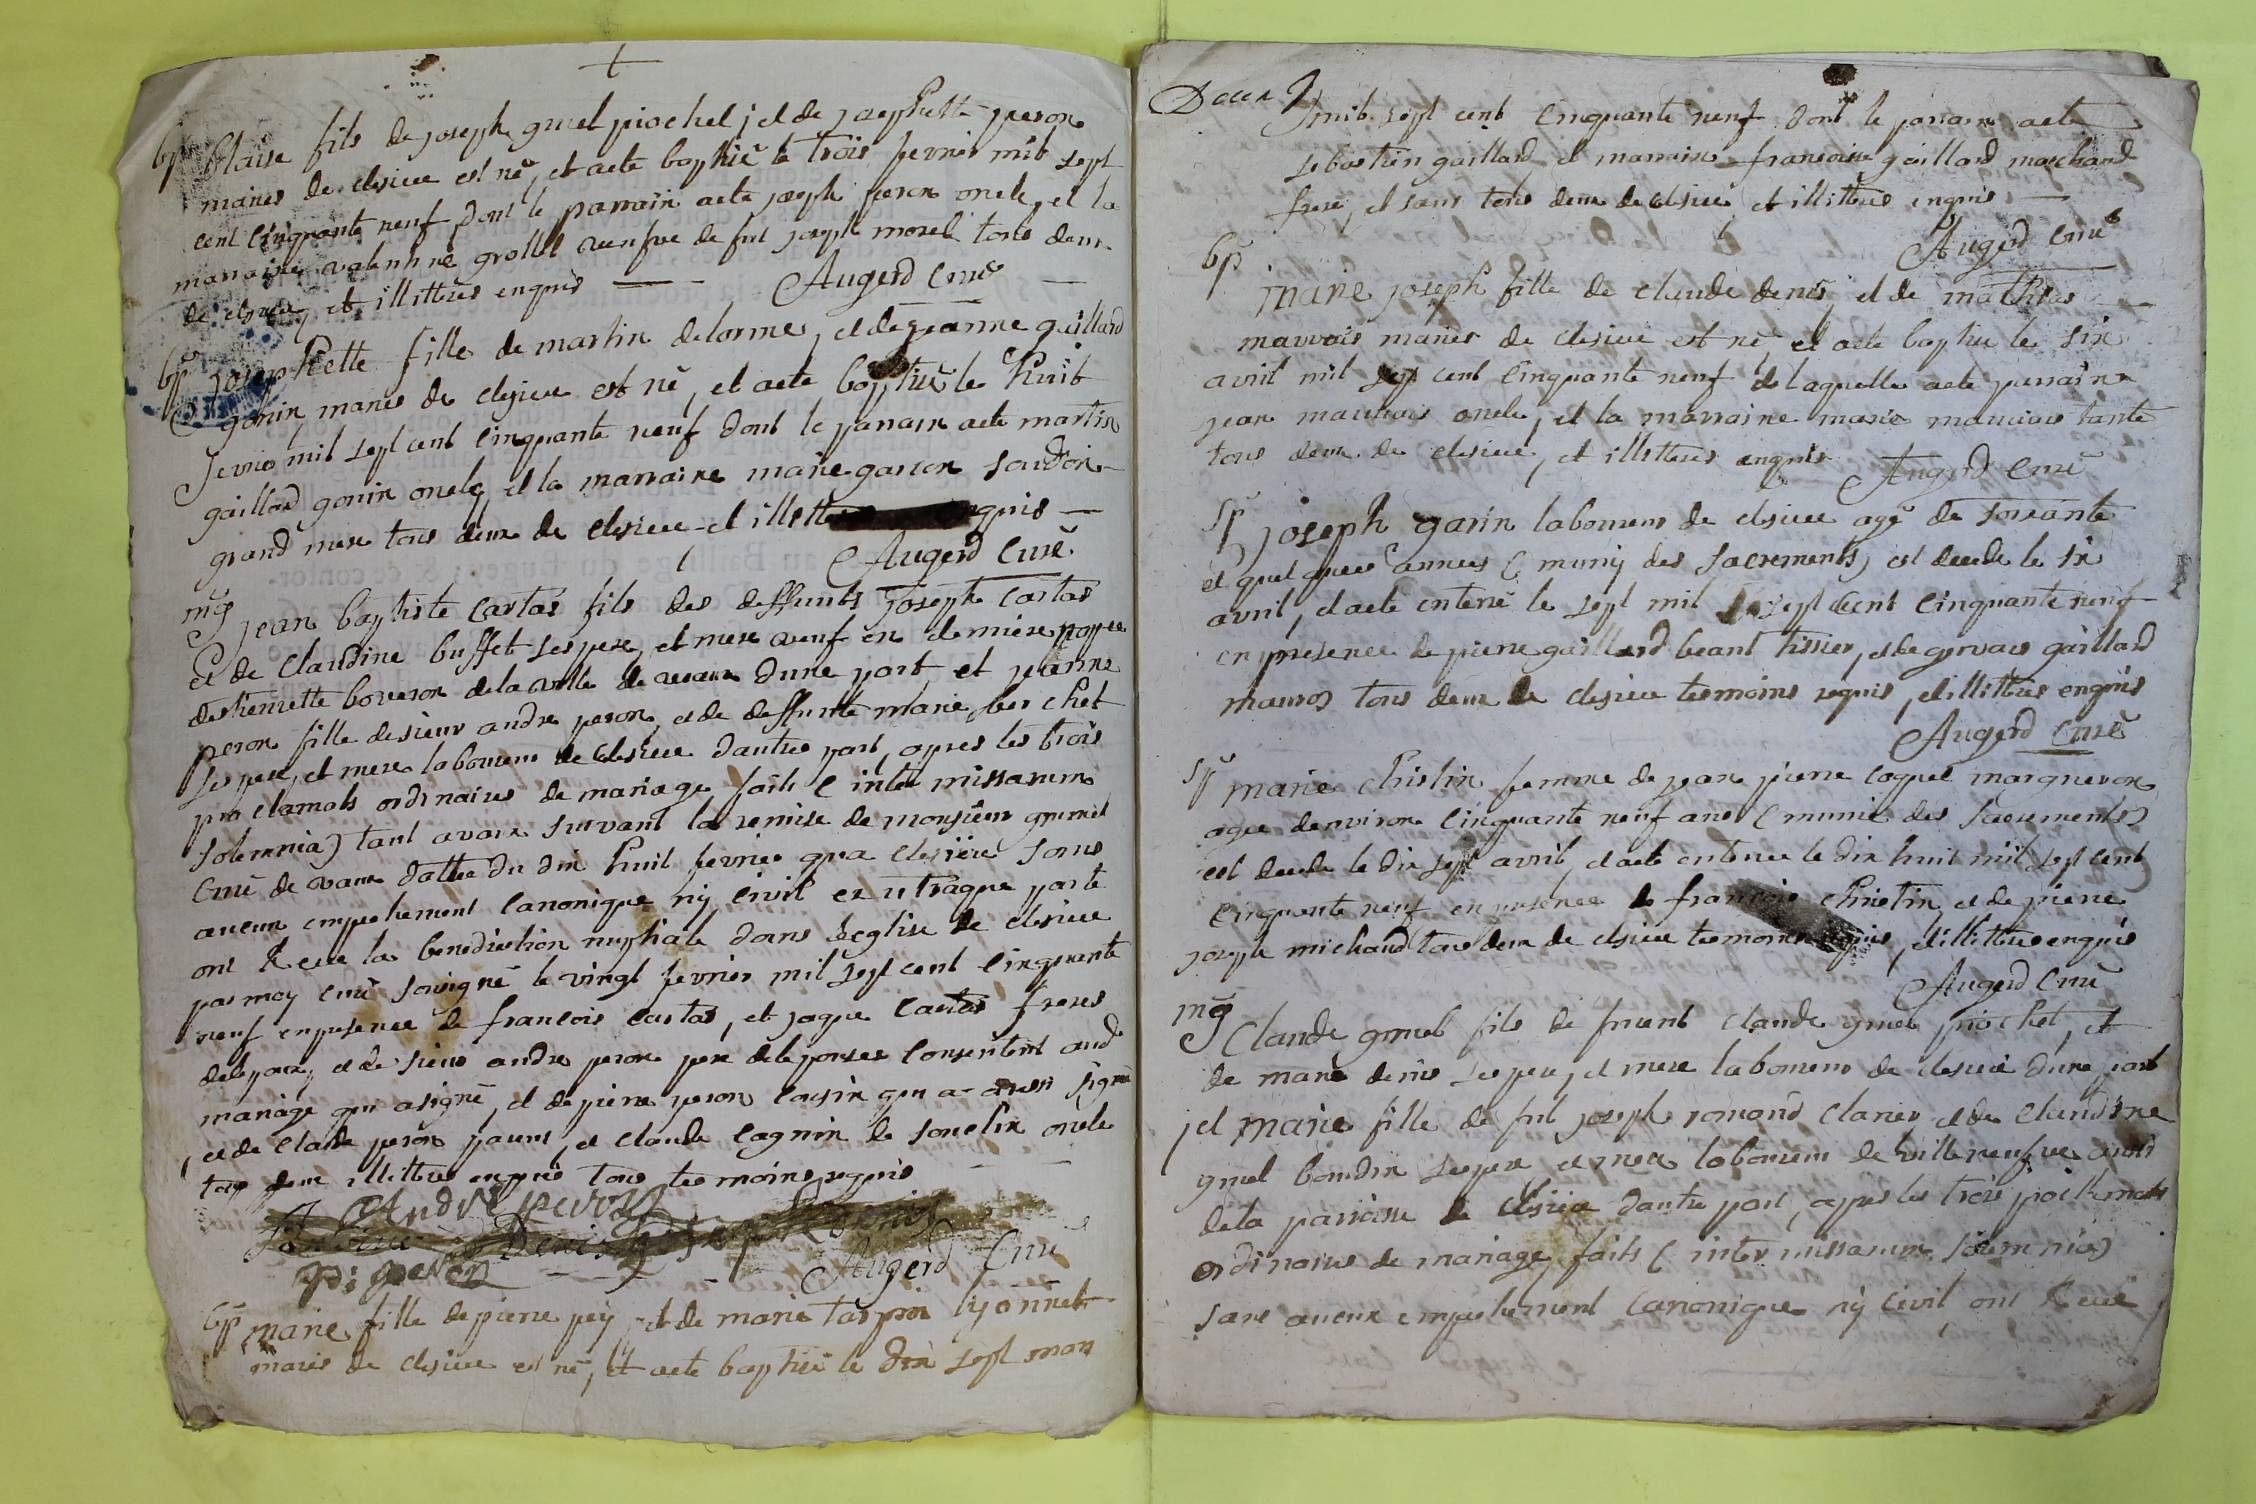 bp blaise fils de joseph gruel piochel, et de josephette peron
mariés de clesieu est né, et aeté baptisé le trois fevrier mil sept
cent cinquante neuf dont le parrain aeté joseph peron oncle, et la
marraine valentine grollet veufve de fut joseph morel tous deux
de clesieu, et illittérés enquis Augerd Curé
bp josephette fille de martin delorme, et de jeanne gaillard
gonin mariés de clesieu est né, et aeté baptisée le huit
fevrier mil sept cent cinquante neuf dont le parrain aeté martin
gaillard gonin oncle, et la marraine marie garin
grand mere tous deux de clesieu et illittérés enquis
Augerd Curé
mg jean baptiste cartas fils des deffunts joseph cartas
et de Claudine buffet ses pere, et mere veuf en derniere noppce
de henriette boveron de la ville de vaux dune part, et jeanne
peron fille de sieur andré peron, et de deffunte marie berchet
ses pere, et mere laboureurs de clesieu dautre part, apres les trois
proclamats ordinaires de mariage faits (inter missarum
solemnia) tant avaux suivant la remise de monsieur grumet
Curé de vaux datté du dix huit fevrier qua clesieu sans
aucun empechement Canonique ny Civil ex utraque parte
ont Receu la benediction nuptiale dans leglise de clesieu
par moy curé soussigné le vingt fevrier mil sept cent cinquante
neuf en presence de francois cartas, et jaque cartas freres
delepoux, et de sieur andré peron pere delepouse Consentent aud
mariage qui asigné, et de pierre peron cousin qui a aussi signé
, et de Claude peron, et claude cagnin de oncle
tous deux illittérés enquis tous temoins requis
André peron
pi peron Augerd Curé
bp marie fille de pierre pey et de marie tarpin lyonnet
mariés de clesieu est né, et aeté baptisée le dix sept mars
mil sept cent cinquante neuf dont le parrain aeté
sebastien gaillard, et marraine francoise gaillard marchand
frere, et sœur tous deux de clesieu et illittérés enquis
Augerd Curé
bp marie joseph fille de claude denis, et de
mauvais mariés de clesieu est né, et aeté baptisée le six
avril mil sept cent cinquante neuf de laquelle aeté parrain
jean mauvais oncle, et la marraine marie mauvais tante
tous deux de clesieu, et illittérés enquis Augerd Curé
sp joseph garin laboureur de clesieu agé de soixante
et quelques années (muny des Sacrements) est decedé le six
avril, et aeté enterré le sept mil sept cent cinquante neuf
en presence de pierre gaillard beant tissier, et de gervais gaillard
tous deux de clesieu temoins requis, et illittérés enquis
Augerd Curé
sp marie christin femme de jean pierre coquet margueron
agée denviron cinquante neuf ans (munie des Sacrements)
est decedé le dix sept avril, et aeté enterrée le dix huit mil sept cent
cinquante neuf en presence de francois christin et de pierre
joseph michaud tous deux de clesieu temoins requis, et illittérés enquis
Augerd Curé
mg Claude gruel fils de Claude gruel piochel, et
de marie denis ses pere, et mere laboureurs de clesieu dune part
, et marie fille de fut joseph romand clarier et de Claudine
gruel boudin ses pere et mere laboureurs de villeneufve aussi
de la paroisse de clesieu dautre part, apres les trois proclamats
ordinaires de mariage faits (inter missarum solemnia)
sans aucun empechement Canonique ny Civil, ont Receu